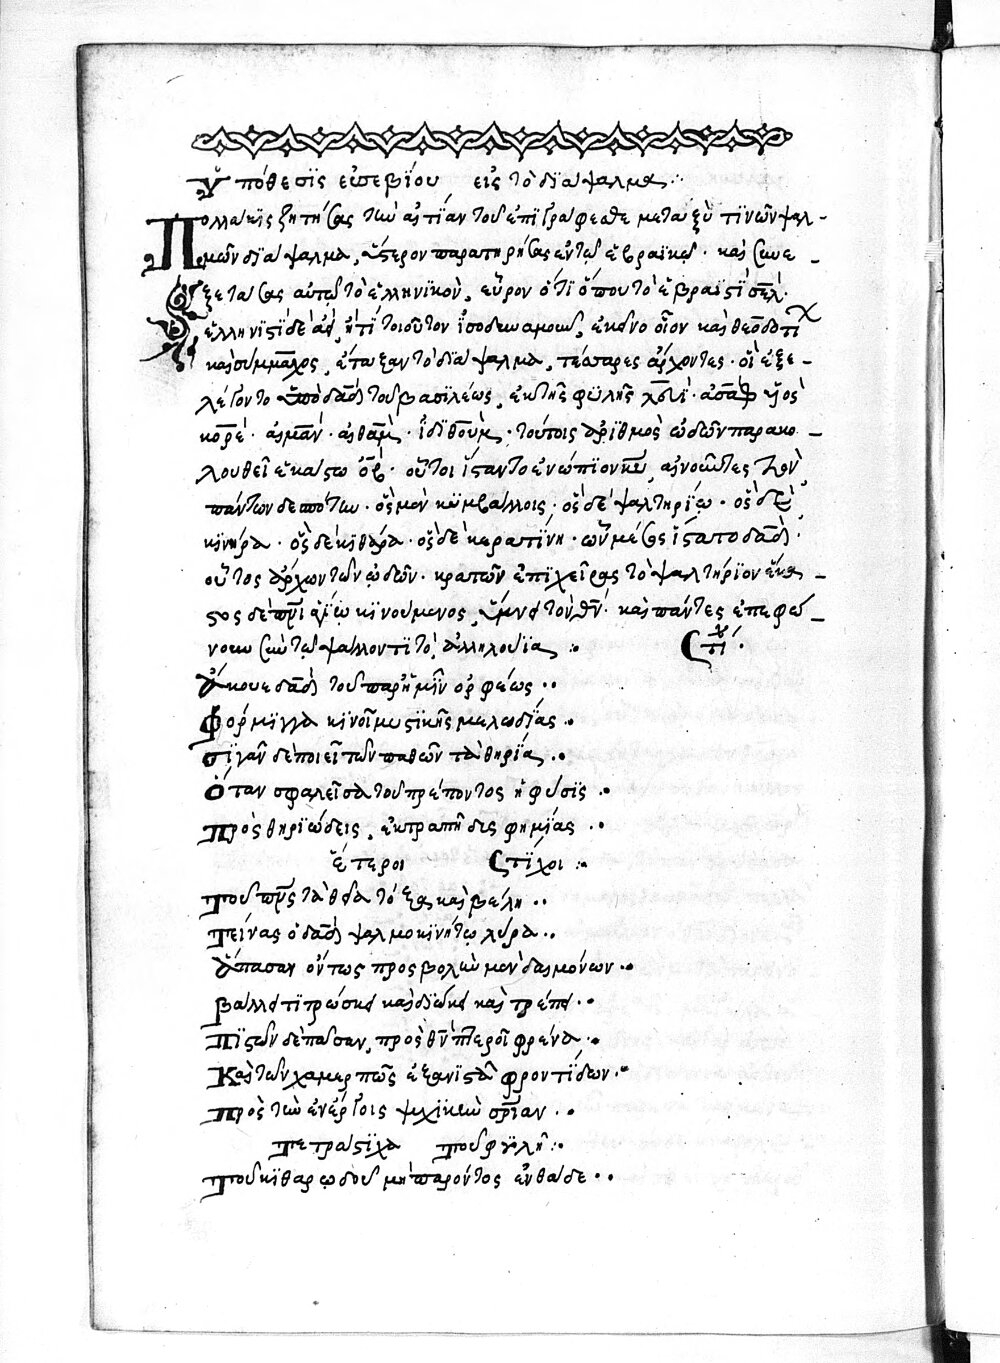 Ὑπόθεσις εὐσεβίου εἰς τὸ διάψαλμα
Πολλάκις ζητήσας τὴν αἰτίαν τοῦ ἐπιγράφεσθαι μεταξὺ τινῶν ψαλ-
μῶν διάψαλμα, ὕστερον παρατηρήσας ἐν τῷ ἑβραϊκῷ· καὶ συνε-
ξετάσας αὐτῷ τὸ ἑλληνικὸν, εὗρον ὅτι ὅπου τὸ ἑβραϊστὶ σέλ·
ἑλληνιστὶ δὲ ἀεί, ἤ τι τοιοῦτον ἰσοδυναμοῦν, ἐκεῖνο οἷον καὶ θεοδοτί
καὶ σύμμαχος, ἔταξαν τὸ διάψαλμα, τέσσαρες ἄρχοντες· οἳ ἐξε-
λέγοντο ὑπὸ δαδ τοῦ βασιλέως, ἐκ τῆς φυλῆς λευί· ἀσὰφ υἱὸς
κορέ· αἰμάν· αἰθάμ· ἰδιθούμ· τούτοις ἀριθμὸς ᾠδῶν παρακο-
λουθεῖ ἑκάστω οβ· οὗτοι ἵσταντο ἐνώπιον κυ, αἰνοῦντες τὸν
πάντων δεσπότην· ὃς μὲν κυμβάλλοις· ὃς δὲ ψαλτηρίῳ· ὃς δὲ
κινήρα· ὃς δὲ κιθάρα· ὃς δὲ κερατίνη· ὧν μέσος ἵστατο δαδ·
οὗτος ἄρχων τῶν ᾠδῶν· κρατῶν ἐπὶ χεῖρας τὸ ψαλτήριον ἕκα-
στος δὲ πνι ἁγίῳ κινούμενος, ὕμνει τὸν θν· καὶ πάντες ἐπεφώ-
νουν τῷ ψάλλοντι τὸ, ἀλληλούϊα
Στί
Ἄκουε δαδ τοῦ παρ' ἡμῖν ὀρφέως
Φόρμιγγα κινοῦ μυστικῆς μελωδίας
σιγᾶν δὲ ποιεῖ τῶν παθῶν τὰ θηρία
Ὅταν σφαλεῖσα τοῦ πρέποντος ἡ φύσις
Πρὸς θηριώδεις, ἐκτραπῇ δυσφημίας
ἕτεροι Στίχοι
Τοῦ πνς τὰ θεῖα τόξα καὶ βέλη
Τείνας ὁ δαδ ψαλμοκινήτῳ λύρα
Ἅπασαν οὕτως προσβολὴν μὲν δαιμόνων
βάλλει τιτρώσκει καὶ διώκει καὶ τρέπει
Πιστῶν δὲ πᾶσαν, πρὸς θν πτεροῖ φρένα
Καὶ τῶν χαμερπῶς ἐξανιστᾶ φροντίδων
Πρὸς τὴν ἐνέργοις ψυχικὴν σρίαν
Τετράστιχα τοῦ φυλῆ
Τοῦ κιθαρῳδοῦ μὴ παρόντος ἐνθάδε